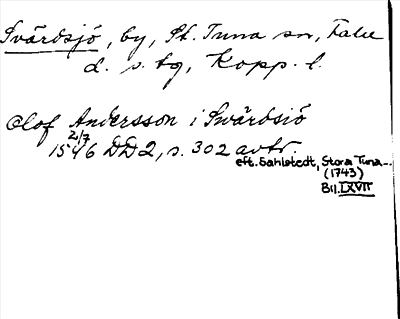 Svärdsjö, by, St. Tuna sn, Falu
d. s. tg, Kopp. l.
Olof Andersson i Swärdsiö
2/7
1546 DD2, s. 302 avtr.
eft. Sahlstedt, Stora Tuna...
(1743)
Bil. LXVII